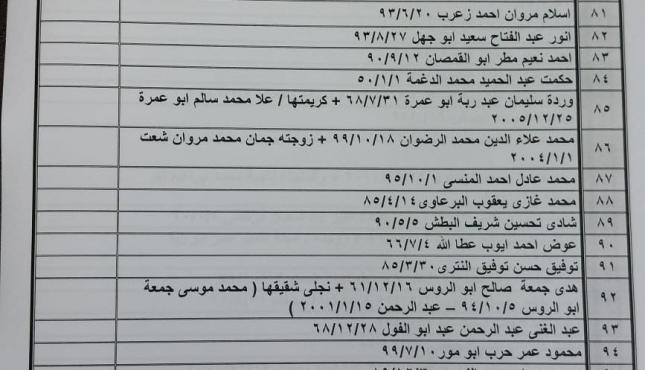 ٨١ اسلام مروان احمد زعرب ٩٣/٦/٢٠
٨٢ انور عبد الفتاح سعيد ابو جهل ٩٣/٨/٢٧
٨٣ احمد نعيم مطر ابو القمصان ٩٠/٩/١٢
٨٤ حكمت عبد الحميد محمد الدغمة ٥٠/١/١
٨٥ وردة سليمان عبد ربة ابو عمرة ٦٨/٧/٣١ + كريمتها / علا محمد سالم ابو عمرة
٢٠٠٥/١٢/٢٥
٨٦ محمد علاء الدين محمد الرضوان ٩٩/١٠/١٨ + زوجته جمان محمد مروان شعت
٢٠٠٤/١/١
٨٧ محمد عادل احمد المنسى ٩٥/١٠/١
٨٨ محمد غازى يعقوب البرعاوى ٨٥/٤/١٤
٨٩ شادى تحسين شريف البطش ٩٠/٥/٥
٩٠ عوض احمد ايوب عطا الله ٦٦/٧/٤
٩١ توفيق حسن توفيق النترى ٨٥/٣/٣٠
٩٢ هدى جمعة صالح ابو الروس ٦١/١٢/١٦ + نجلى شقيقها ( محمد موسى جمعة
ابو الروس ٩٤/١٠/٥ – عبد الرحمن ٢٠٠١/١/١٥ )
٩٣ عبد الغنى عبد الرحمن عبد ابو الفول ٦٨/١٢/٢٨
٩٤ محمود عمر حرب ابو مور ٩٩/٧/١٠